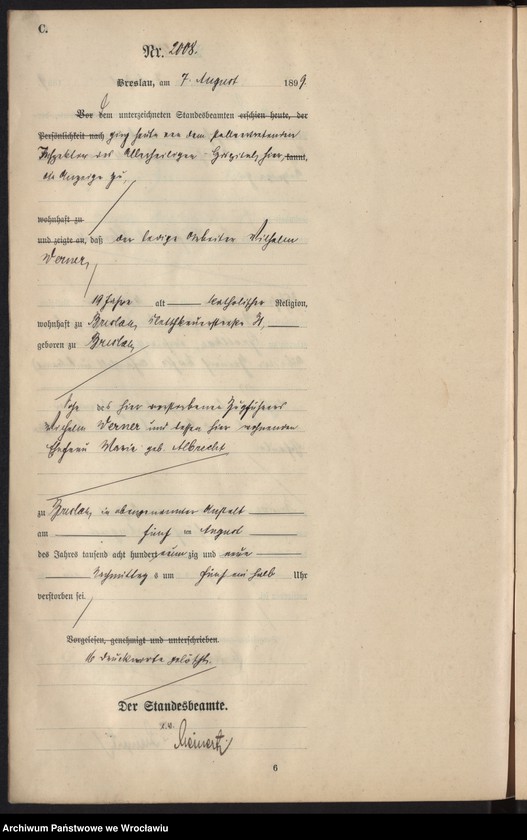 C.
Nr. 2008.
Breslau, am 7. August 1899.
Vor dem unterzeichneten Standesbeamten erschien heute, der
Persönlichkeit nach ging heute von dem stellvertretenden
Inspektor des Allerheiligen-Hospitals hier, kannt,
die Anzeige zu,
wohnhaft zu
und zeigte an, daß der ledige Arbeiter Wilhelm
Werner,
19 Jahre alt katholischer Religion,
wohnhaft zu Breslau,
geboren zu Breslau,
Sohn des hier verstorbenen Zugführers
Wilhelm Werner und dessen hier wohnenden
Ehefrau Maria geb. Albrecht
zu Breslau, in obengenannter Anstalt
am fünf ten August
des Jahres tausend acht hundert neun zig und neun
Nachmittags um fünf ein halb Uhr
verstorben sei.
Vorgelesen, genehmigt und unterschrieben.
16 Druckworte gelöscht.
Der Standesbeamte.
I.V.
6
Archiwum Państwowe we Wrocławiu